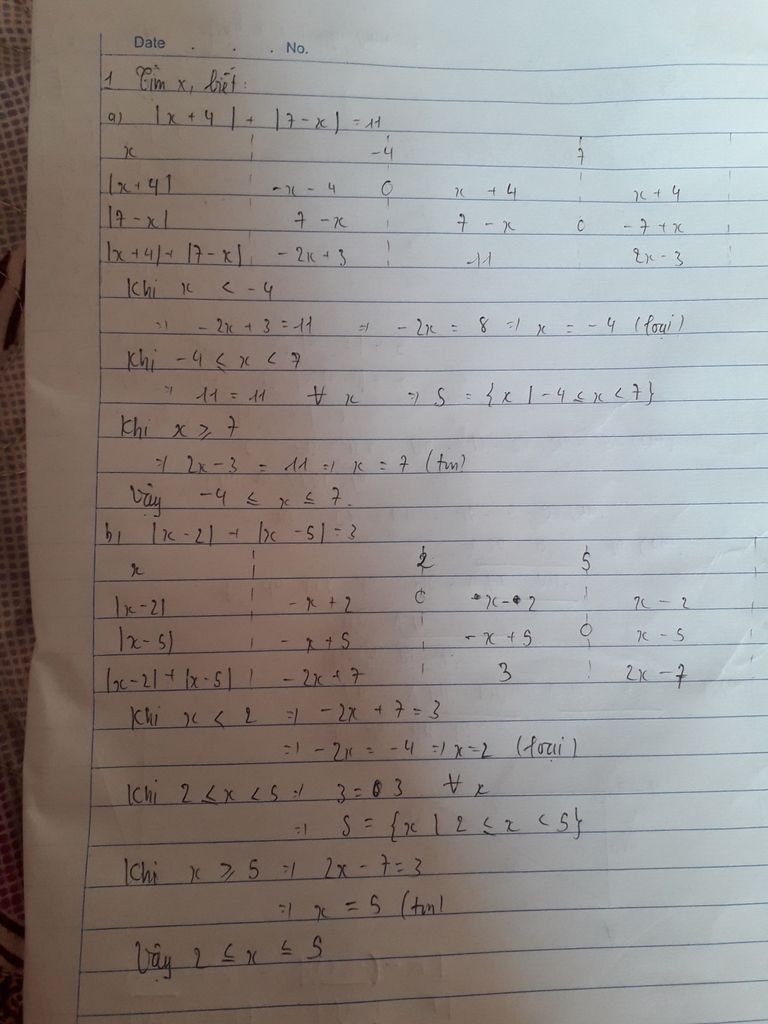 Date . . . No.
1 Tìm x, biết:
a) |x + 4| + |7 - x| = 11
x -4 7
|x + 4| -x - 4 0 x + 4 x + 4
|7 - x| 7 - x 7 - x 0 -7 + x
|x + 4| + |7 - x| -2x + 3 11 2x - 3
Khi x < -4
=> -2x + 3 = 11 => -2x = 8 => x = -4 (loại)
Khi -4 ≤ x < 7
=> 11 = 11 ∀ x => S = {x | -4 ≤ x < 7}
Khi x ≥ 7
=> 2x - 3 = 11 => x = 7 (tm)
Vậy -4 ≤ x ≤ 7.
b) |x - 2| + |x - 5| = 3
x 2 5
|x - 2| -x + 2 0 x - 2 x - 2
|x - 5| -x + 5 -x + 5 0 x - 5
|x - 2| + |x - 5| -2x + 7 3 2x - 7
Khi x < 2 => -2x + 7 = 3
=> -2x = -4 => x = 2 (loại)
Khi 2 ≤ x < 5 => 3 = 3 ∀ x
=> S = {x | 2 ≤ x < 5}
Khi x ≥ 5 => 2x - 7 = 3
=> x = 5 (tm)
Vậy 2 ≤ x ≤ 5